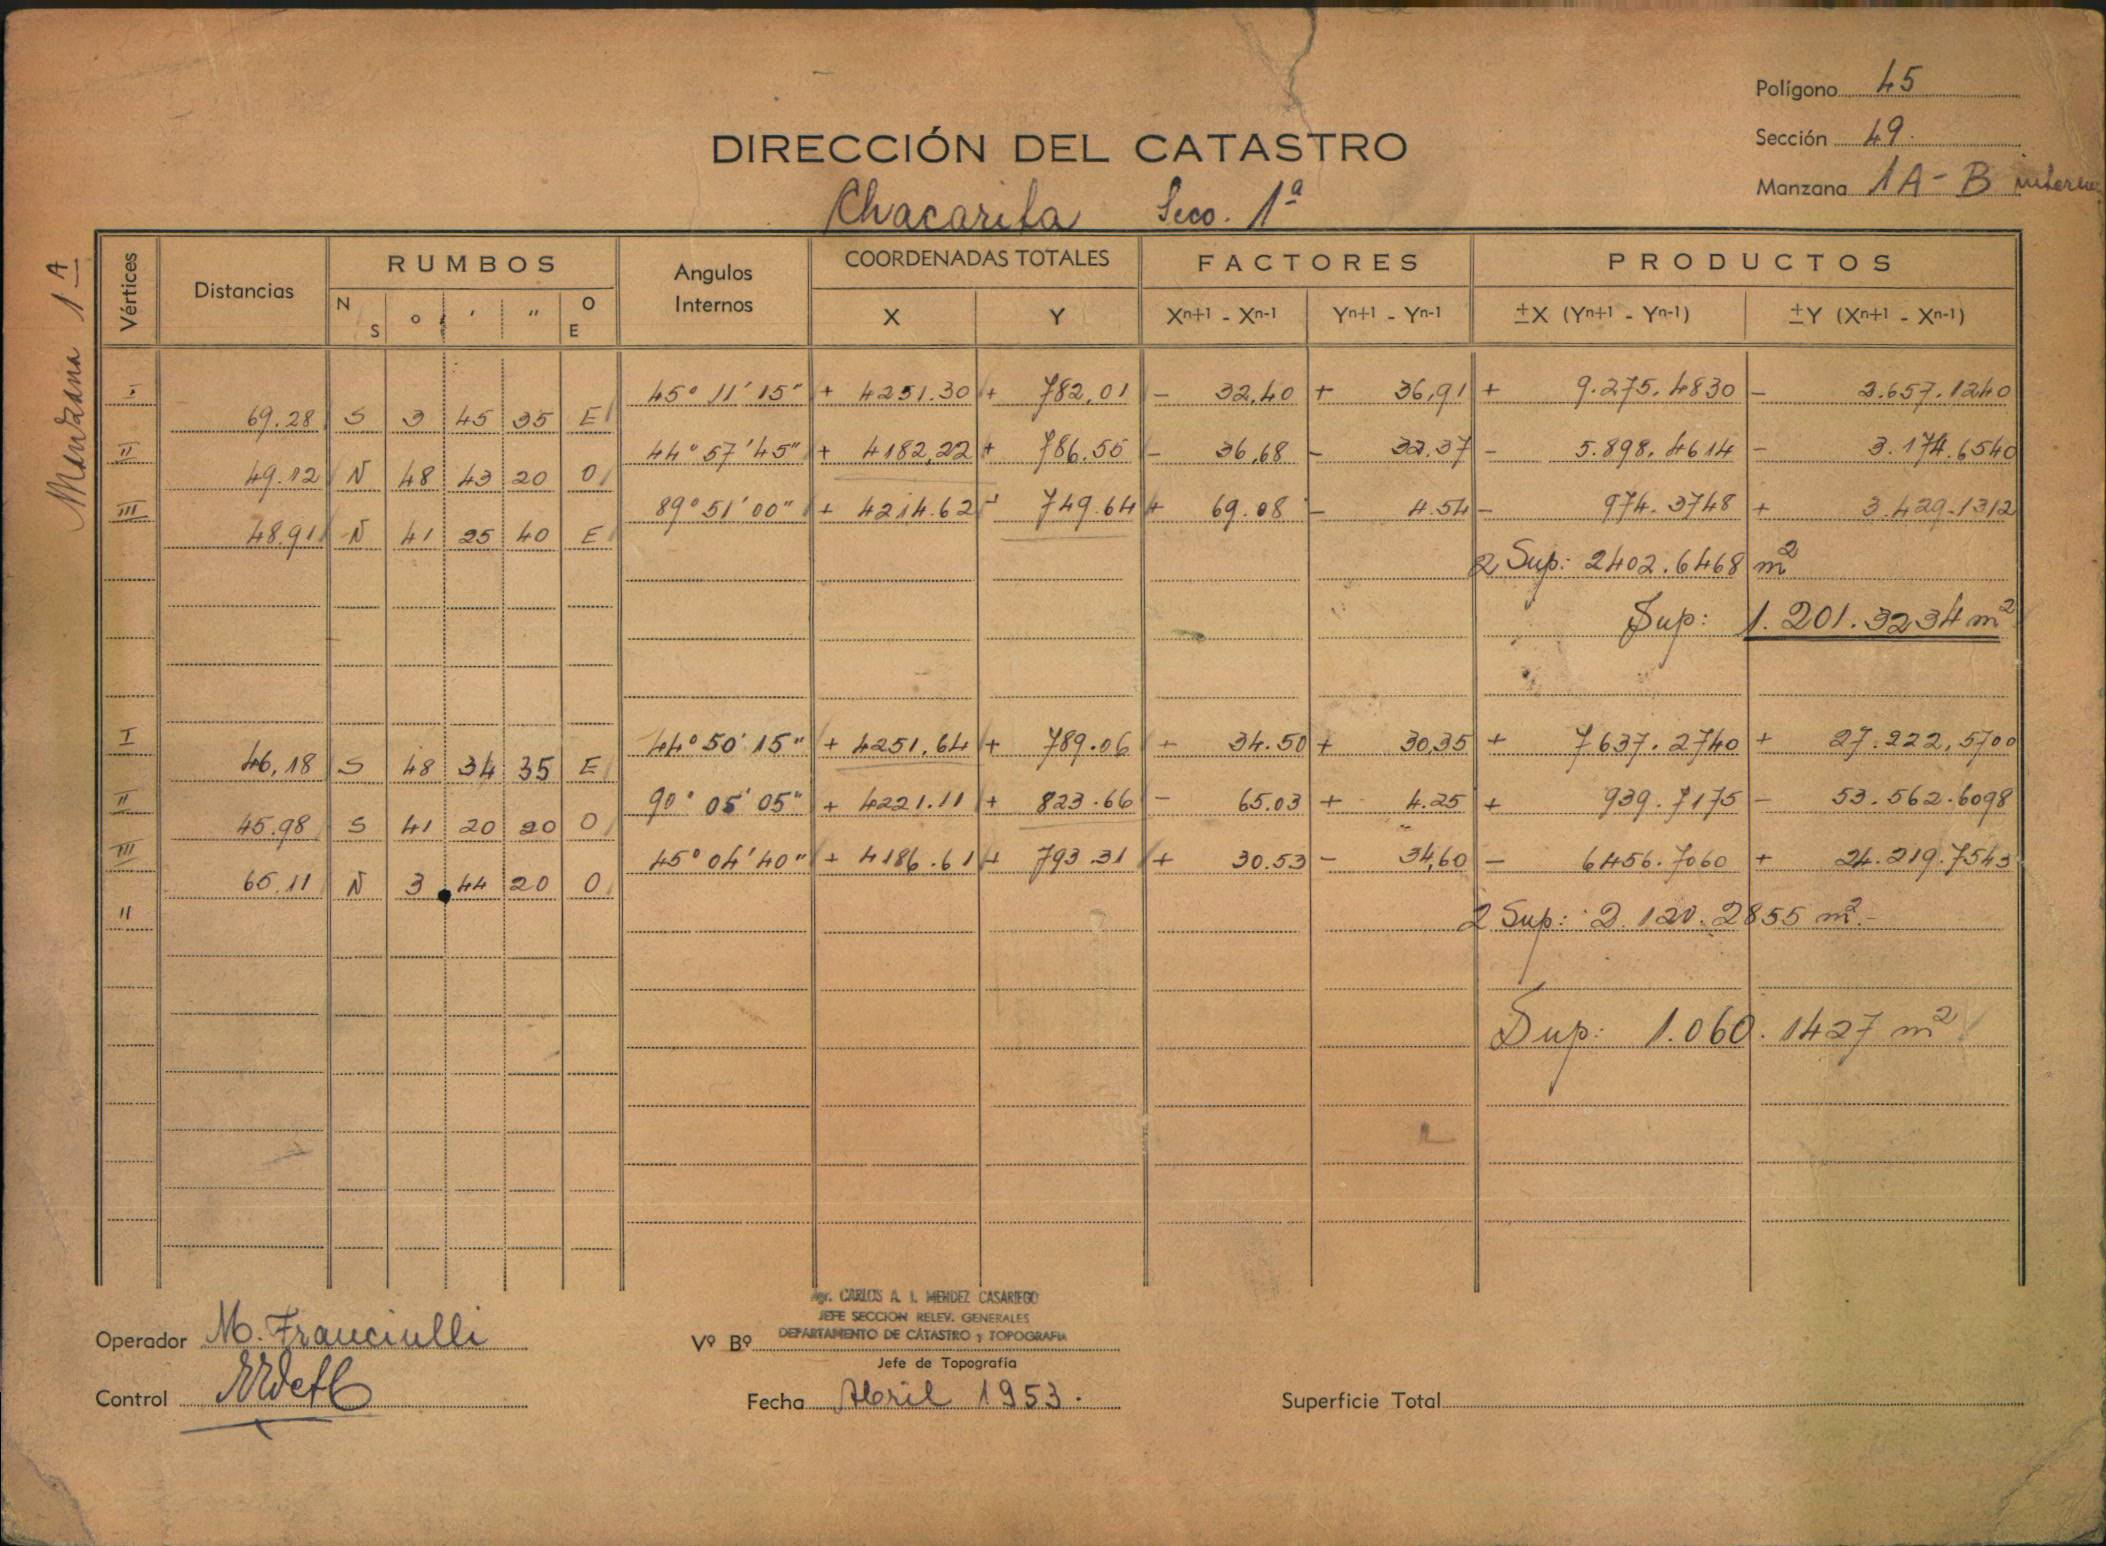 Polígono 45
DIRECCIÓN DEL CATASTRO
Sección 49.
Manzana 1A - B
Chacarita Secc. 1ª
Manzana 1 A
Vértices Distancias RUMBOS Angulos Internos COORDENADAS TOTALES FACTORES PRODUCTOS
N S o ' " O E X Y Xn+1 - Xn-1 Yn+1 - Yn-1 ±X (Yn+1 - Yn-1) ±Y (Xn+1 - Xn-1)
I 45° 11' 15" + 4251.30 + 782,01 - 32,40 + 36,91 + 9.275.4830 - 2.657.1240
69.28 S 3 45 35 E
II 44° 57' 45" + 4182,22 + 786.55 - 36,68 - 32.37 - 5.898.4614 - 3.174.6540
49.12 N 48 43 20 O
III 89° 51' 00" + 4214.62 + 749.64 + 69.08 - 4.54 - 974.3748 + 3.429.1312
48.91 N 41 25 40 E
2 Sup: 2402.6468 m²
Sup: 1.201.3234 m²
I 44° 50' 15" + 4251,64 + 789.06 + 34.50 + 30,35 + 7637.2740 + 27.222,5700
46,18 S 48 34 35 E
II 90° 05' 05" + 4221.11 + 823.66 - 65.03 + 4.25 + 939.7175 - 53.562.6098
45.98 S 41 20 20 O
III 45° 04' 40" + 4186.61 + 793.31 + 30.53 - 34,60 - 6456.7060 + 24.219.7543
65.11 N 3 44 20 O
" 2 Sup: 2.120.2855 m².-
Sup: 1.060.1427 m²
Agr. CARLOS A. I. MENDEZ CASARIEGO
JEFE SECCION RELEV. GENERALES
DEPARTAMENTO DE CATASTRO y TOPOGRAFIA
Operador M. Franciulli Vº Bº
Jefe de Topografía
Control Fecha Abril 1953. Superficie Total